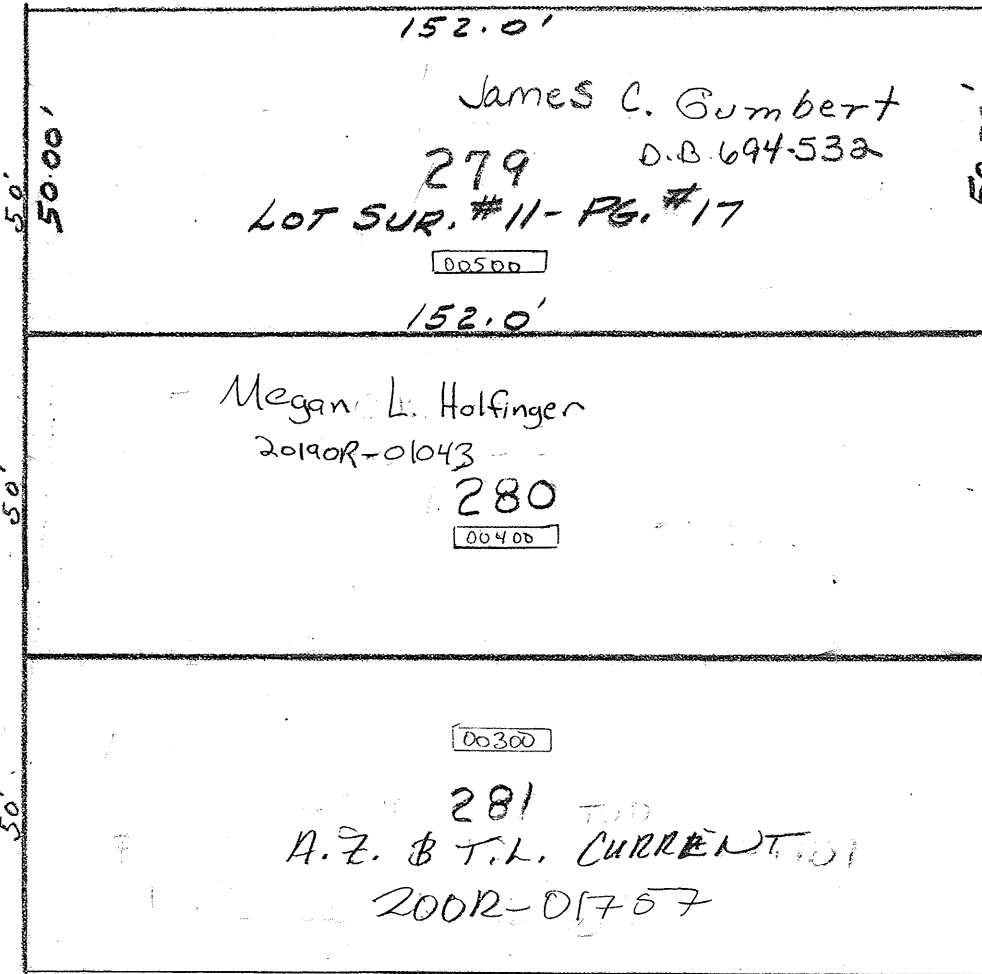 152.0'
James C. Gumbert
D.B. 694-532
50.00'
50'
279
LOT SUR. #11- PG. #17
00500
152.0'
Megan L. Holfinger
2019OR-01043
50'
280
00400
00300
50'
281
A.Z. & T.L. CURRENT
200R-01757